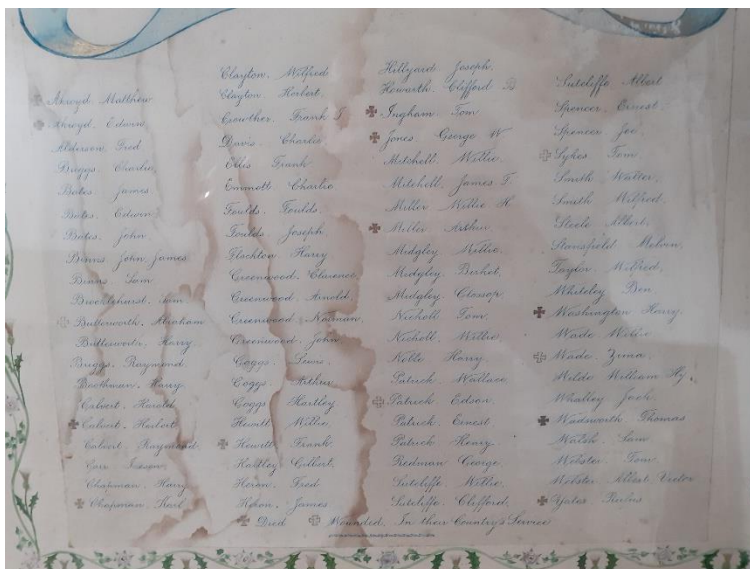 ✠ Akroyd. Matthew
✠ Akroyd. Edward
Alderson Fred
Baggs Charlie
Bates. James
Bates. Edwin
Bates. John
Binns John James
Binns Sam
Brocklehurst. Sam
✠ Butterworth. Abraham
Butterworth. Harry
Briggs. Raymond
Boothman. Harry.
Calvert. Harold
✠ Calvert. Herbert
Calvert. Raymond
Carr
Chapman. Harry
✠ Chapman. Karl
Clayton. Wilfred
Clayton Herbert.
Crowther. Frank T
Davis. Charlie
Ellis Frank
Emmott Charlie
Foulds. Foulds.
Foulds Joseph
Flockton Harry
Greenwood. Clarence.
Greenwood. Arnold.
Greenwood. Norman.
Greenwood. John.
Goggs. Lewis.
Goggs. Arthur
Goggs Hartley
Hewitt Willie.
✠ Hewitt Frank
Hartley Gilbert.
Heron. Fred
Heron. James
Hillyard Joseph.
Howarth Clifford B
✠ Ingham Tom
✠ Jones George W
Mitchell Willie.
Mitchell. James T.
Miller Willie H
✠ Miller Arthur
Midgley Willie.
Midgley
Midgley Clossop
Nicholl Tom.
Nicholl. Willie.
Noble Harry
Patrick. Wallace
✠ Patrick. Edson.
Patrick. Ernest
Patrick Henry.
Redman George.
Sutcliffe. Willie.
Sutcliffe. Clifford.
Sutcliffe Albert
Spencer. Ernest.
Spencer Joe.
✠ Sykes Tom.
Smith Walter.
Smith Wilfred.
Steele Albert.
Stansfield Melvin.
Taylor. Wilfred.
Whiteley Ben
✠ Washington Harry.
Wade Willie
✠ Wade
Wilde William Hy.
Whalley Jack.
✠ Wadworth Thomas
Walsh. Sam
Webster. Tom.
Webster Albert Victor
✠ Yates Rufus
✠ Died ✠ Wounded. In their Country's Service